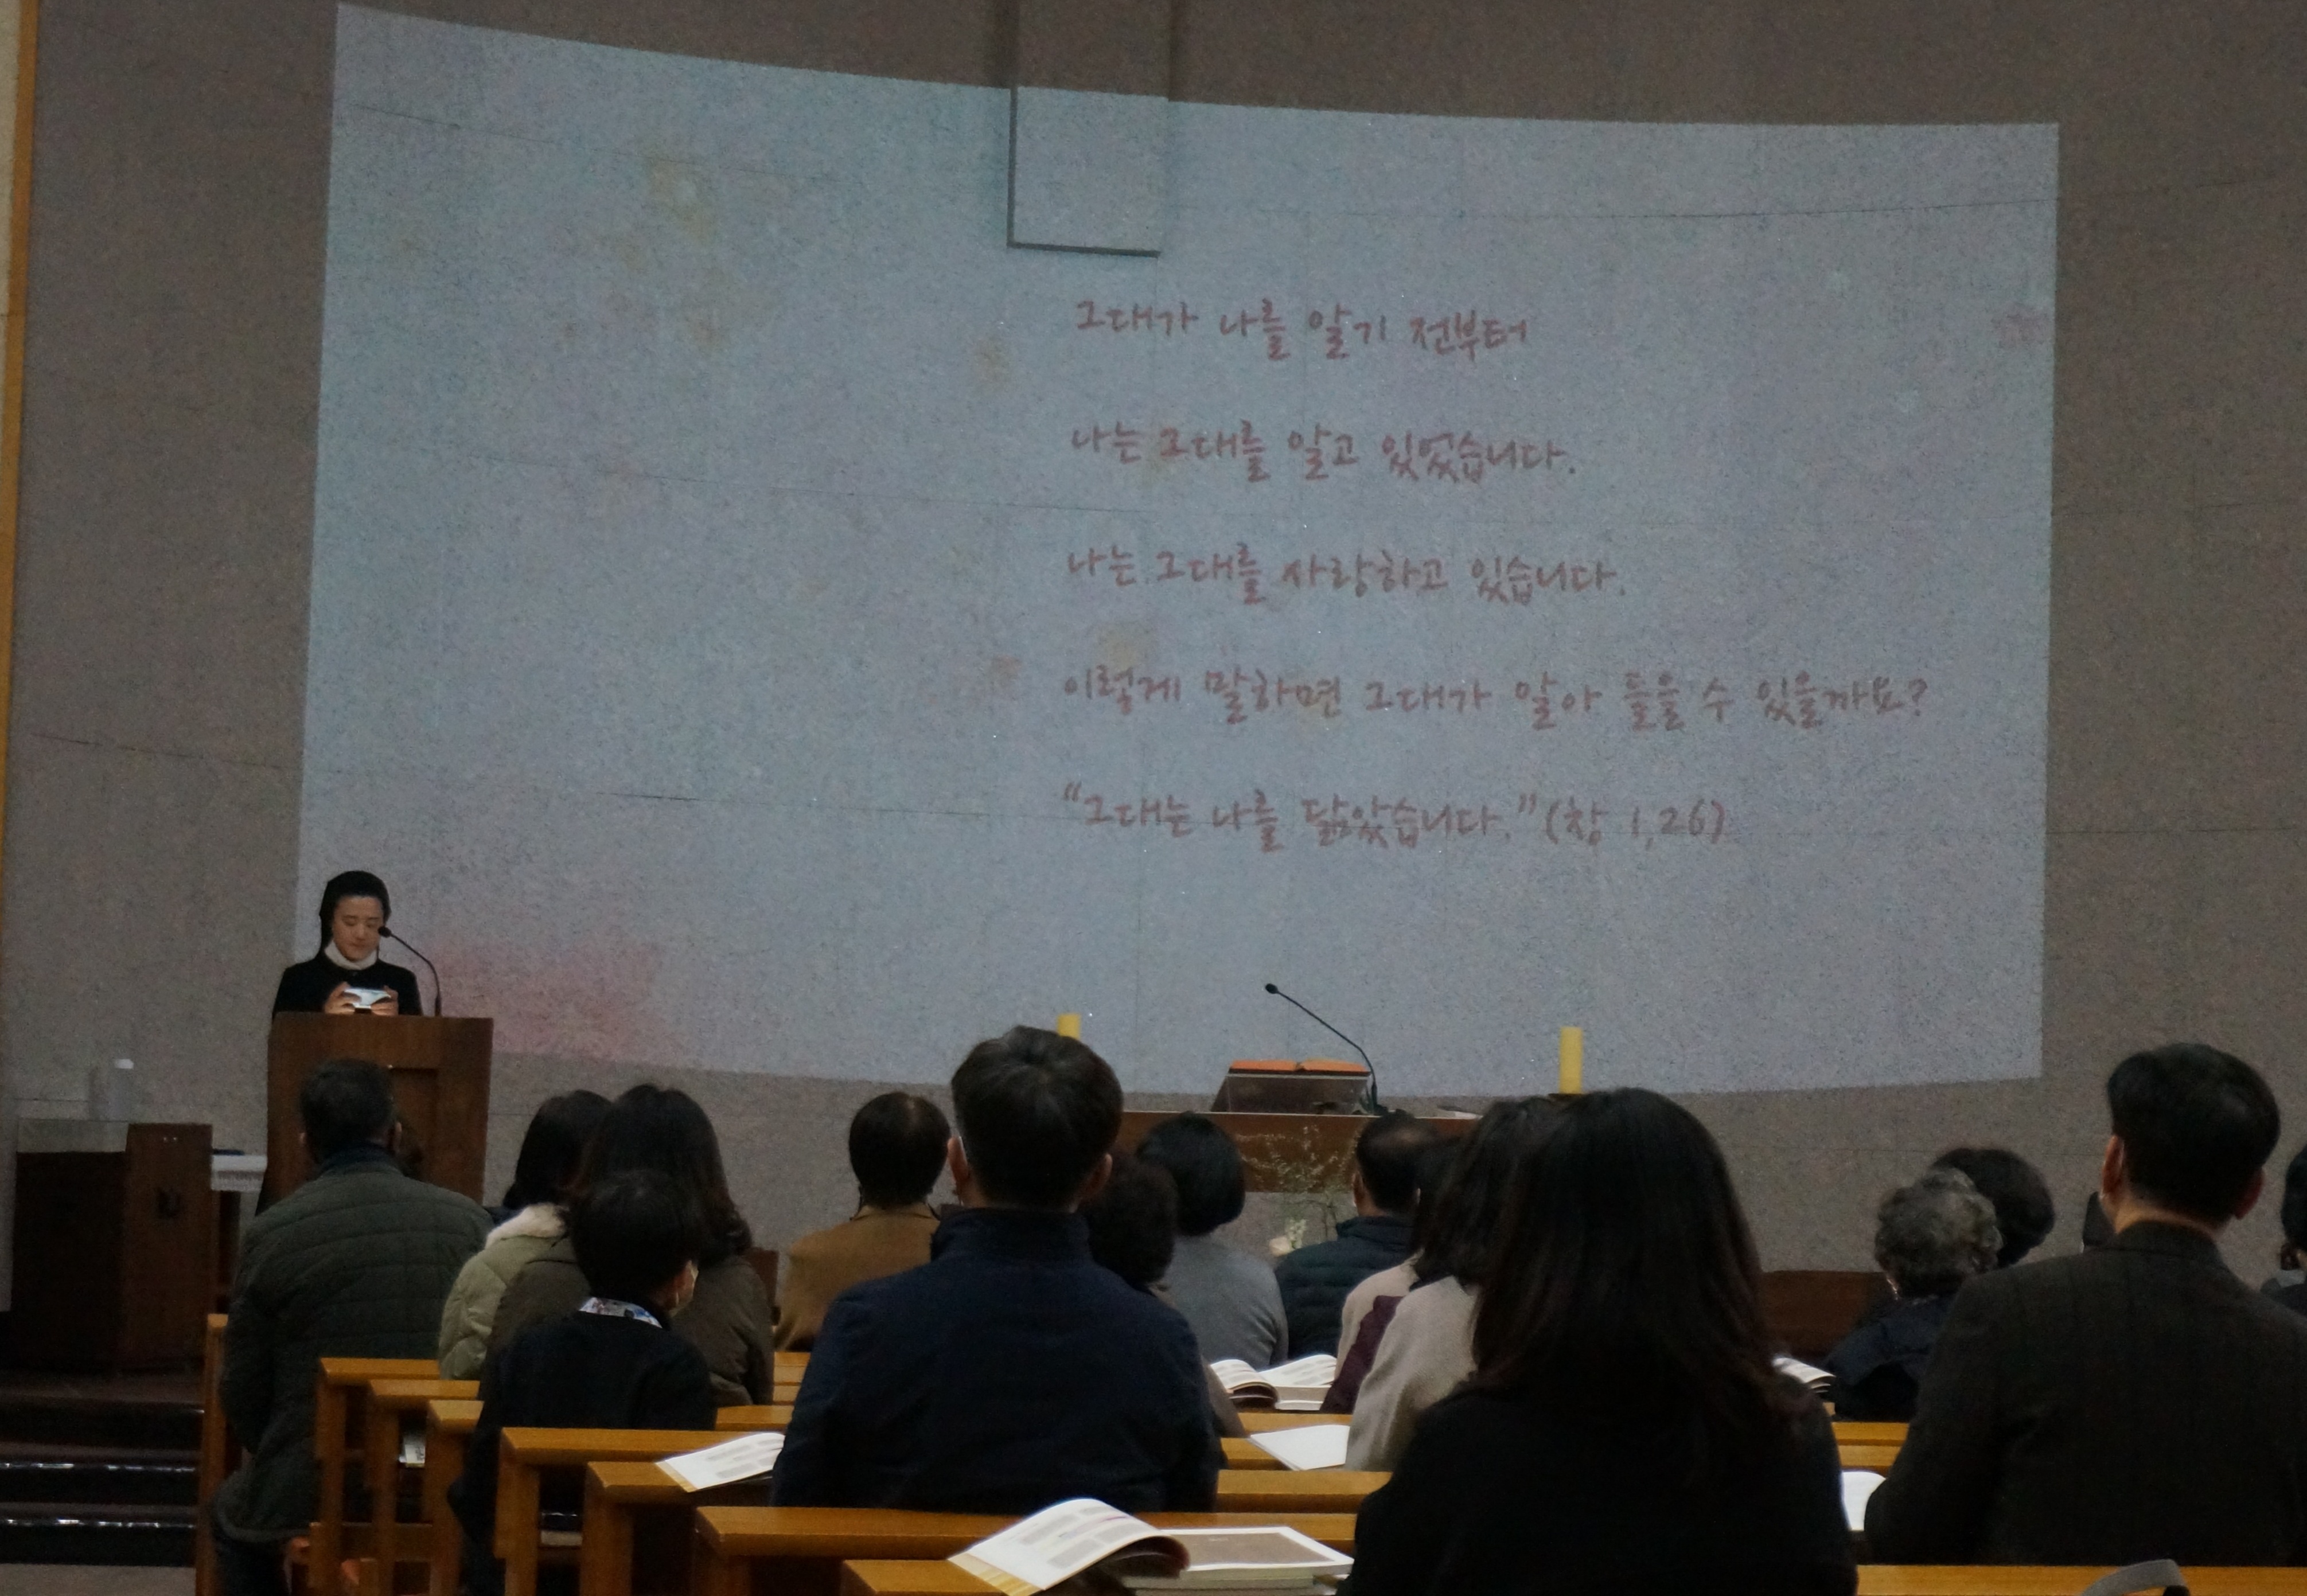 그대가 나를 알기 전부터
나는 그대를 알고 있었습니다.
나는 그대를 사랑하고 있습니다.
이렇게 말하면 그대가 알아 들을 수 있을까요?
“그대는 나를 닮았습니다.”(창 1,26)